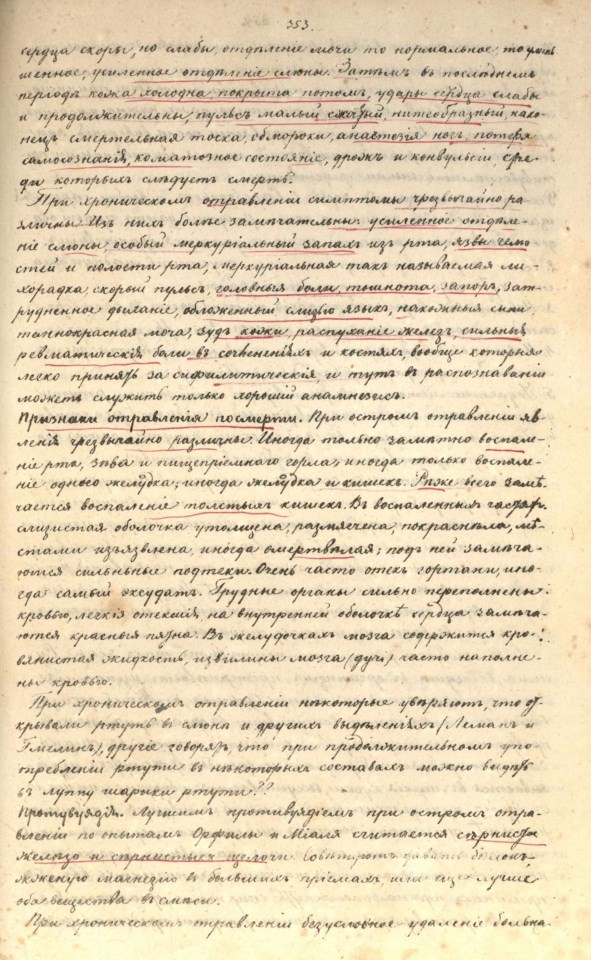 353.
сердца скоры, но слабы, отдѣленіе мочи то нормальное, то умень
шенное; усиленное отдѣленіе слюны. Затѣмъ въ послѣднемъ
періодѣ кожа холодна, покрыта потомъ, удары сердца слабы
и продолжительны, пульсъ малый сжатый, нитеобразный, нако-
нецъ смертельная тоска, обмороки, анастозія ногъ, потеря
самосознанія, коматозное состояніе, дрожь и конвульсіи сре-
ди которыхъ слѣдуетъ смерть.
При хроническомъ отравленіи симптомы чрезвычайно ра
зличны. Изъ нихъ болѣе замѣчательны: усиленное отдѣле-
ніе слюны, особый меркуріальный запахъ изъ рта, язвы челю
стей и полости рта, меркуріальная такъ называемая ли-
хорадка, скорый пульсъ, головныя боли, тошнота, запоръ, зат-
рудненное дыханіе, обложенный слизью языкъ, накожныя сыпи,
темнокрасная моча, зудъ кожи, распуханіе железъ, сильныя
ревматическія боли въ сочлененіяхъ и костяхъ, вообще которыя
легко принять за сифилитическія, и тутъ въ распознаваніи
можетъ служить только хорошій анамнезисъ.
Признаки отравленія посмерти. При остромъ отравленіи яв-
ленія чрезвычайно различны. Иногда только замѣтно воспале-
ніе рта, зѣва и пищепріемнаго горла; иногда только воспале-
ніе одного желудка; иногда желудка и кишекъ. Рѣже всего замѣ-
чается воспаленіе толстыхъ кишекъ. Въ воспаленныхъ частях.
слизистая оболочка утолщена, размягчена, покраснѣла, мѣ-
стами изъязвлена, иногда омертвѣлая; подъ ней замѣча-
ются сильные подтеки. Очень часто отекъ гортани, ино-
гда самый эксудатъ. Грудные органы сильно переполнены
кровью, легкія отекшія, на внутренней оболочкѣ сердца замѣча-
ются красныя пятна. Въ желудочкахъ мозга содержится кро-
вянистая жидкость, извилины мозга (дуч) часто наполне-
ны кровью.
При хроническомъ отравленіи нѣкоторые увѣряютъ, что от
крывали ртуть въ слюнѣ и другихъ выдѣленіяхъ (Леманъ и
Гмелинъ), другіе говорятъ, что при продолжительномъ упо-
требленіи ртути въ нѣкоторыхъ составахъ можно видѣть
въ лупу шарики ртути??
Противуядія. Лучшимъ противуядіемъ при остромъ отра-
вленіи по опытамъ Орфилы и Міаля считается сѣрнистое
желѣзо и сѣрнистые щелочи. Совѣтуютъ давать бѣлокъ
жженую магнезію въ большихъ пріемахъ, или еще лучше
оба вещества въ смѣси.
При хроническомъ отравленіи безусловное удаленіе больна-